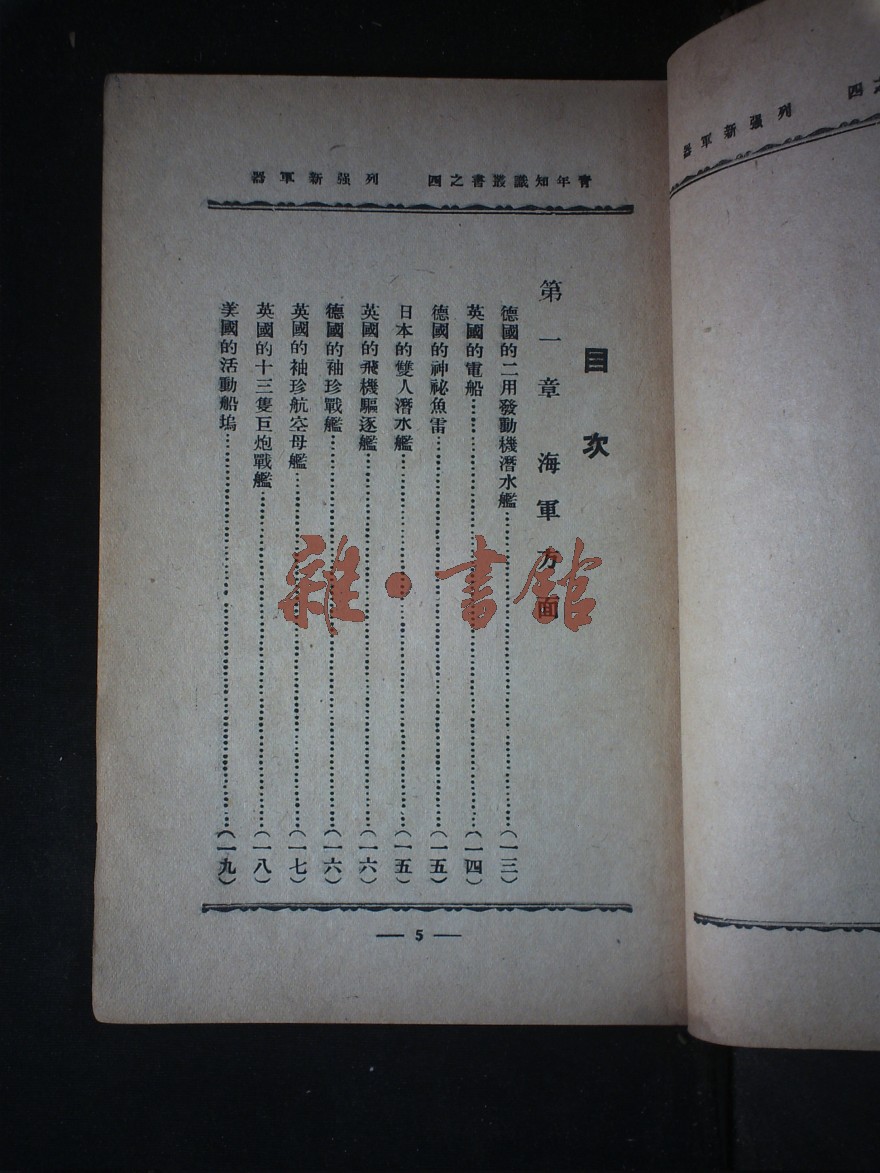 青年知識叢書之四　列强新軍器
目次
第一章　海軍方面
德國的二用發動機潛水艦……………（一三）
英國的電船……………（一四）
德國的神祕魚雷……………（一五）
日本的雙人潛水艦……………（一五）
英國的飛機驅逐艦……………（一六）
德國的袖珍戰艦……………（一六）
英國的袖珍航空母艦……………（一七）
英國的十三隻巨炮戰艦……………（一八）
美國的活動船塢……………（一九）
— 5 —
之四　列强新軍器
雜·書館